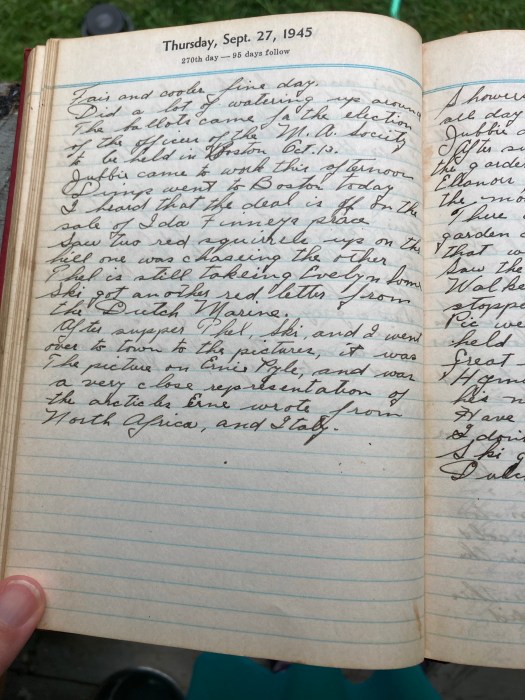 Thursday, Sept. 27, 1945
270th day — 95 days follow
Fair and cooler, fine day.
Did a lot of watering up around
The ballots came for the election
of the officers of the M. A. Society
to be held in Boston Oct. 13.
Jubbie came to work this afternoon
went to Boston today
I heard that the deal is off on the
sale of Ida Finneys place
Saw two red squirrels up on the
hill one was chasing the other
Phel is still takeing Evelyn home
Ski got another red letter from
the Dutch Marine.
After supper Phel, Ski, and I went
over to town to the pictures, it was
The picture on Ernie Pyle, and was
a very close representation of
the articles Erne wrote from
North Africa, and Italy.
Showers
all day
Jubbie
After su
the garde
Eleanor
the mo
There
garden
that w
Saw the
Walke
stoppe
Pic we
held
Great
Ham
his n
Have
I don
Ski g
Dutch